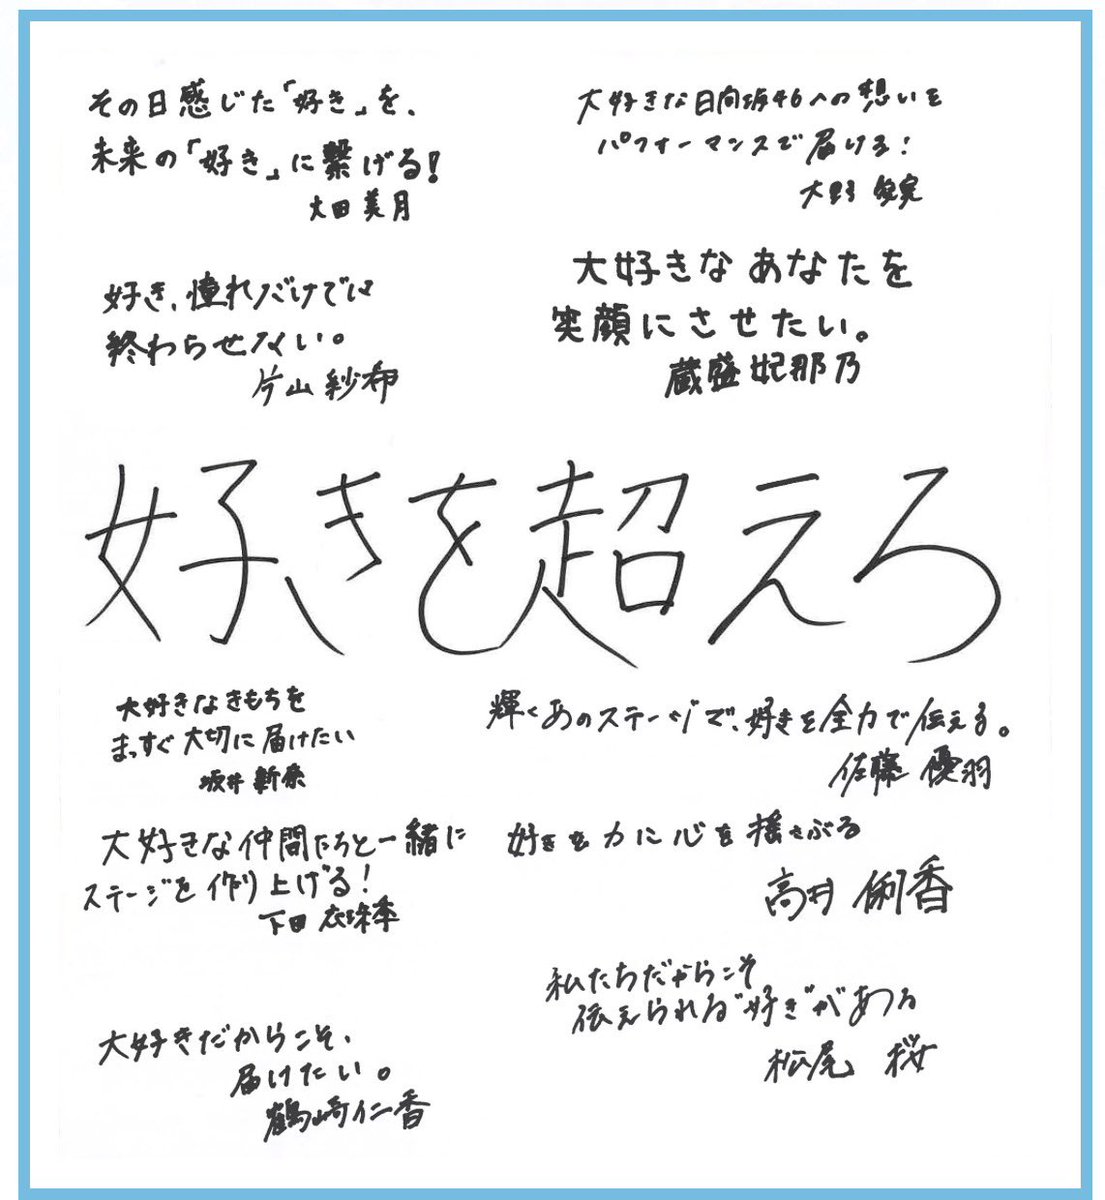 その日感じた「好き」を、
未来の「好き」に繋げる!
大田美月
大好きな日向坂46への想いを
パフォーマンスで届ける!
大野愛実
好き、憧れだけでは
終わらせない。
片山紗希
大好きなあなたを
笑顔にさせたい。
蔵盛妃那乃
好きを超えろ
大好きなきもちを
まっすぐ大切に届けたい
坂井新奈
輝くあのステージで、好きを全力で伝える。
佐藤優羽
大好きな仲間たちと一緒に
ステージを作り上げる!
下田衣珠季
好きを力に心を揺さぶる
高井俐香
大好きだからこそ、
届けたい。
鶴崎仁香
私たちだからこそ
伝えられる"好き"がある
松尾桜